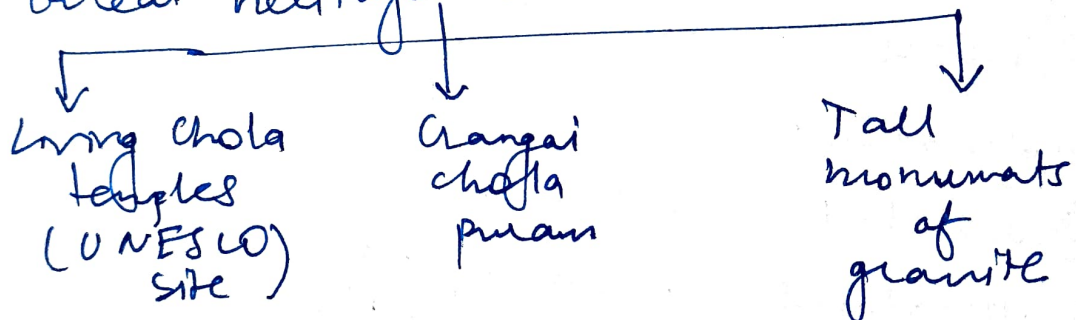 Great heritage
Living Chola
temples
(UNESCO)
site
Gangai
chola
puram
Tall
monumats
of
granite